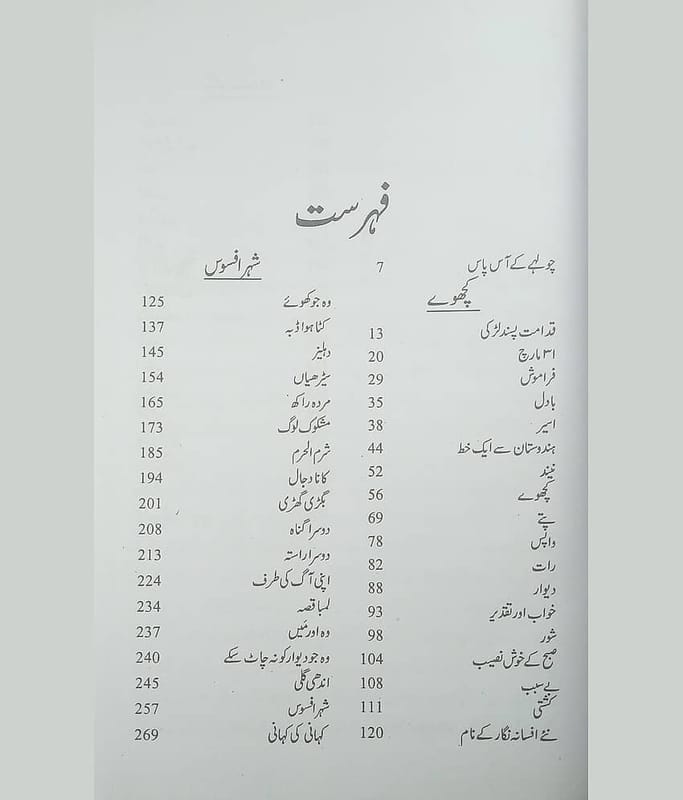 فہرست
چولہے کے آس پاس 7
کچھوے
قدامت پسند لڑکی 13
۳۱ مارچ 20
فراموش 29
بادل 35
اسیر 38
ہندوستان سے ایک خط 44
نیند 52
کچھوے 56
پتے 69
واپس 78
رات 82
دیوار 88
خواب اور تقدیر 93
شور 98
صبح کے خوش نصیب 104
بے سبب 108
کشتی 111
نئے افسانہ نگار کے نام 120
شہر افسوس
وہ جو کھوئے 125
کٹا ہوا ڈبہ 137
دہلیز 145
سیڑھیاں 154
مردہ راکھ 165
مشکوک لوگ 173
شرم الحرم 185
کانا دجال 194
بگڑی گھڑی 201
دوسرا گناہ 208
دوسرا راستہ 213
اپنی آگ کی طرف 224
لمبا قصہ 234
وہ اور میں 237
وہ جو دیوار کو نہ چاٹ سکے 240
اندھی گلی 245
شہر افسوس 257
کہانی کی کہانی 269